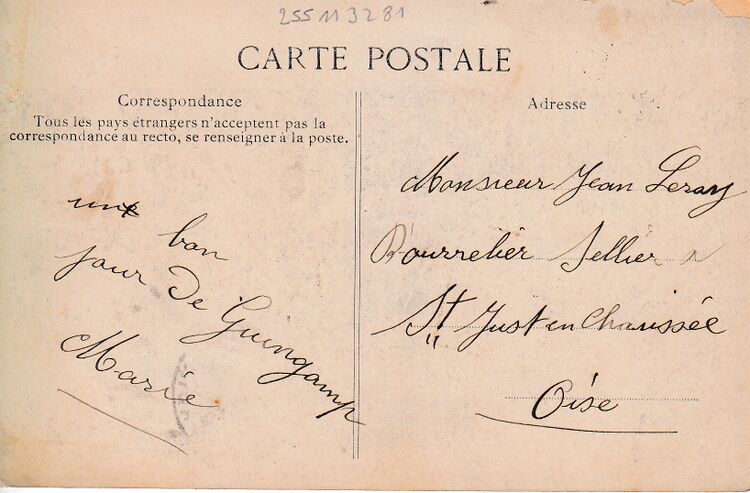 255113281
CARTE POSTALE
Correspondance
Tous les pays étrangers n'acceptent pas la
correspondance au recto, se renseigner à la poste.
un bon
jour De Guingamp
Marie
Adresse
Monsieur Jean Leray
Bourrelier Sellier a
St Just en Chaussée
Oise